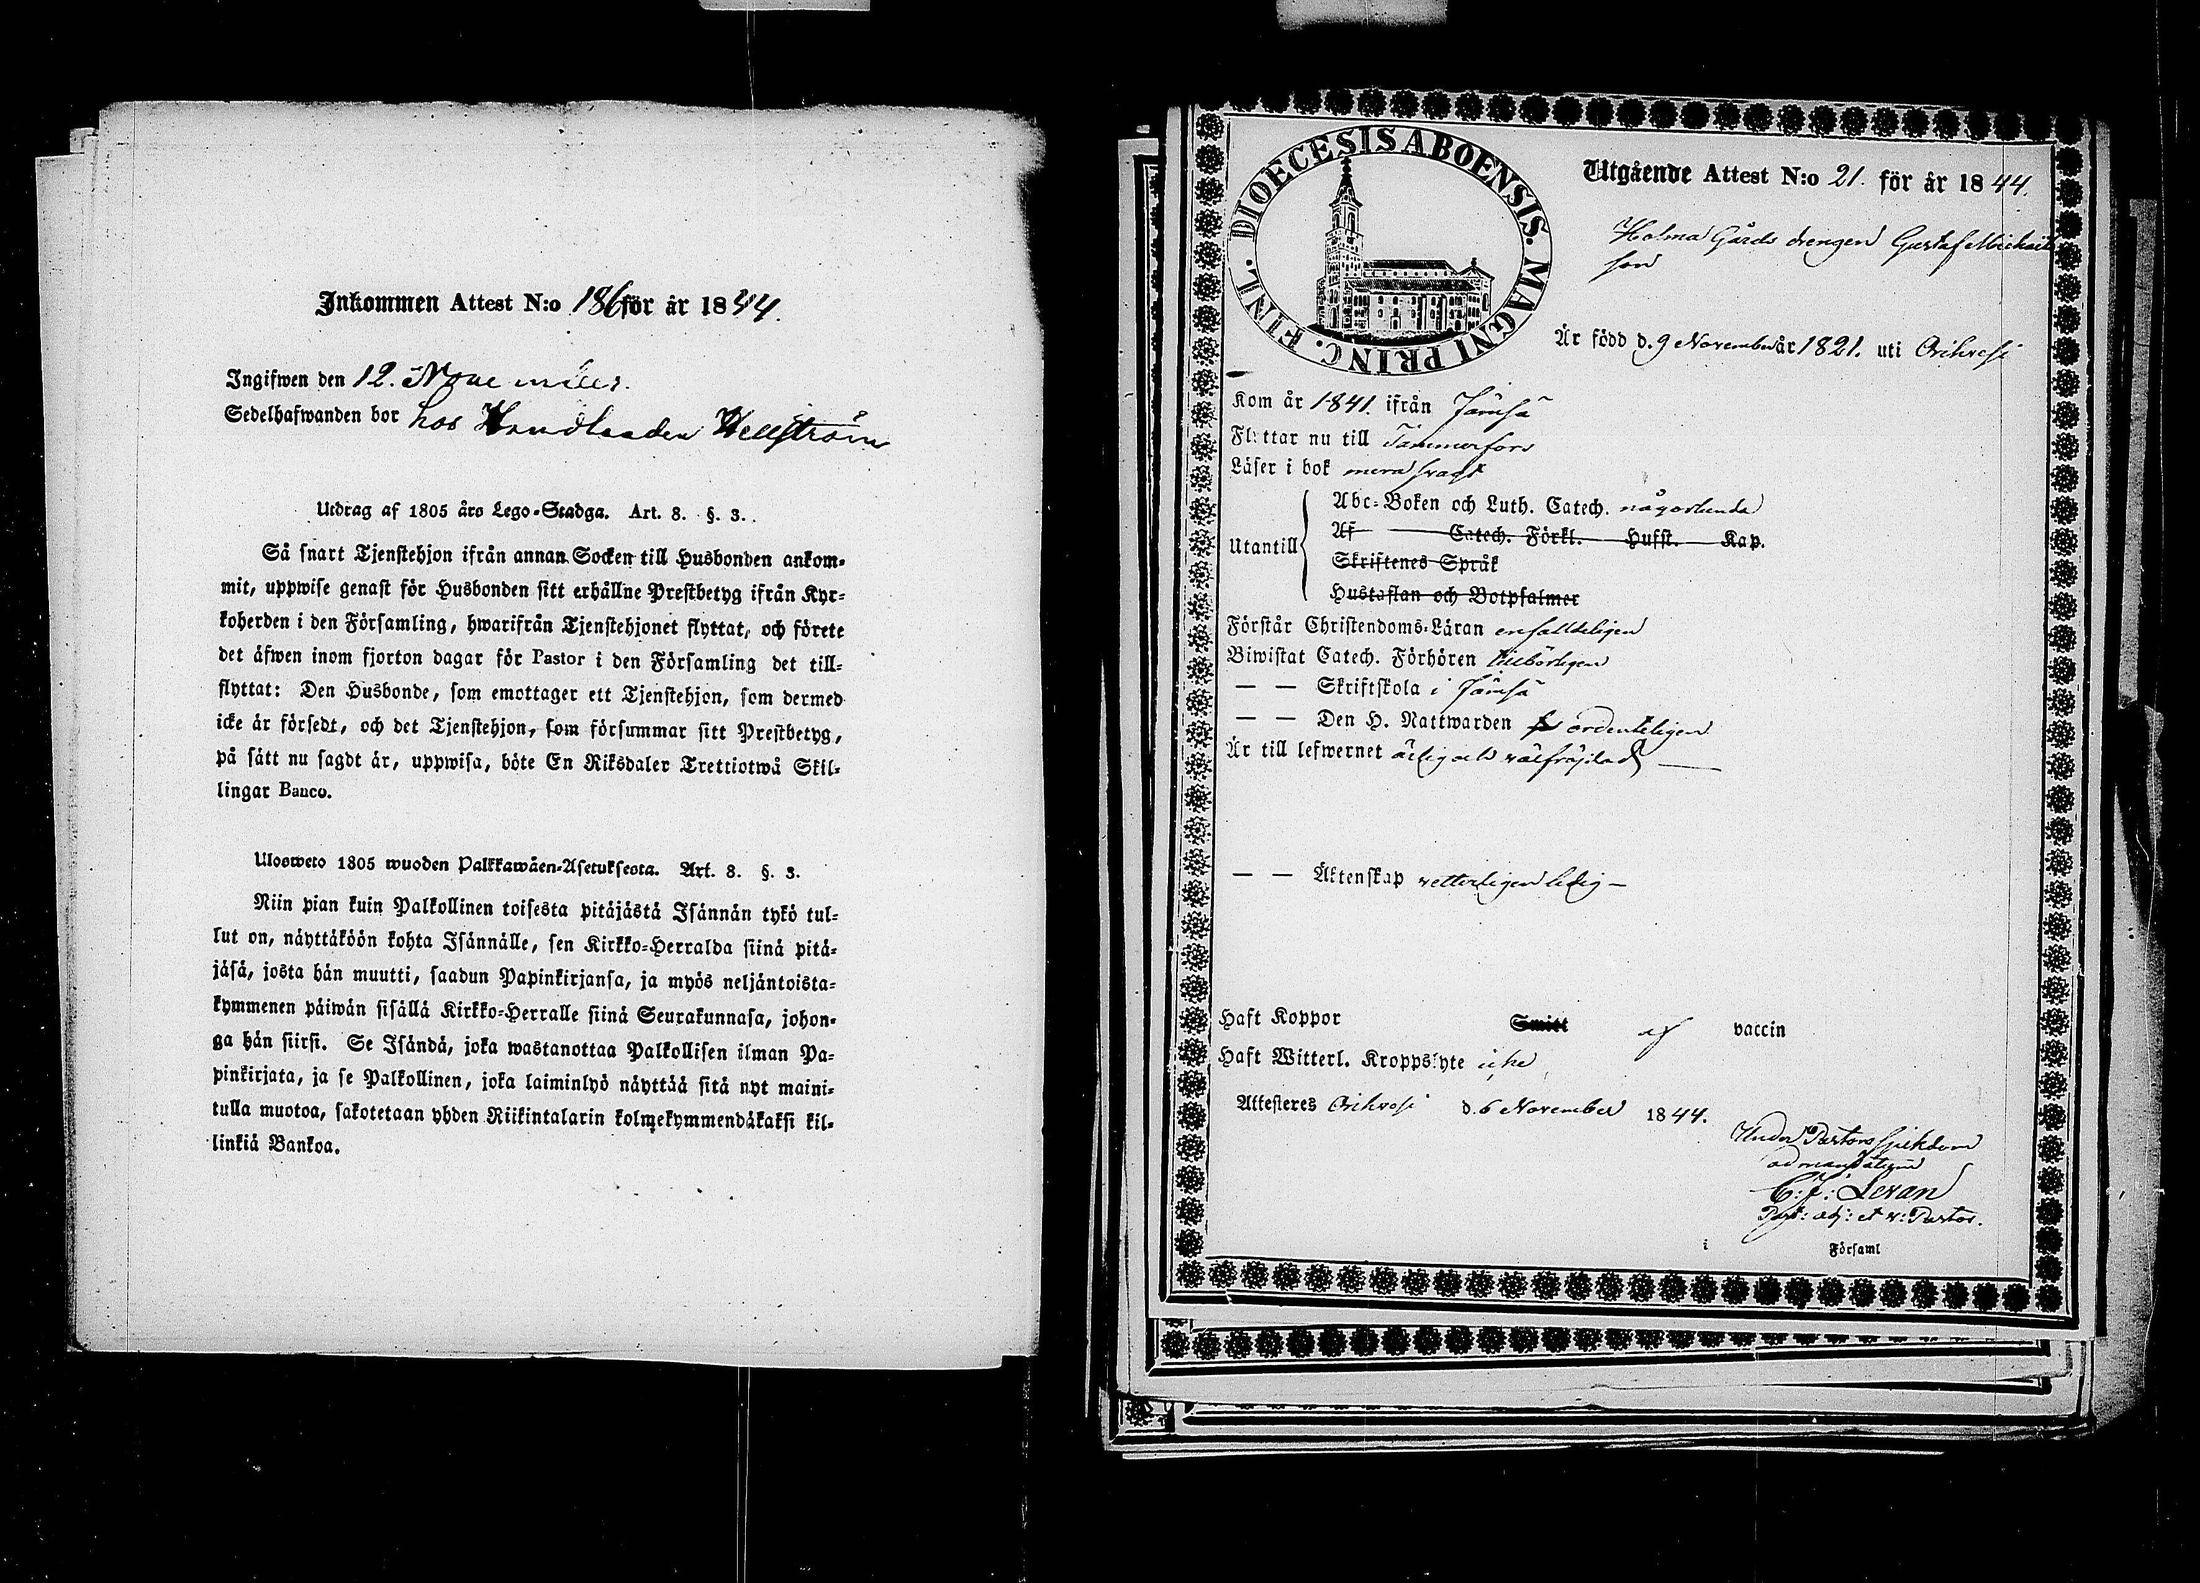 Inkommen Attest N:o 186 för år 1844.
Ingifwen den 12. November.
Sedelhafwanden bor hos Handlanden Hellström
Utdrag af 1805 års Lego-Stadga. Art. 8. §. 3.
Så snart Tjenstehjon ifrån annan Socken till Husbonden ankom-
mit, uppwise genast för Husbonden sitt erhållne Prestbetyg ifrån Kyr-
koherden i den Församling, hwarifrån Tjenstehjonet flyttat, och förete
det äfwen inom fjorton dagar för Pastor i den Församling det till-
flyttat: Den Husbonde, som emottager ett Tjenstehjon, som dermed
icke är försedt, och det Tjenstehjon, som försummar sitt Prestbetyg,
på sätt nu sagdt är, uppwisa, böte En Riksdaler Trettiotwå Skil-
lingar Banco.
Ulosweto 1805 wuoden Palkkawäen-Asetuksesta. Art. 8. §. 3.
Niin pian kuin Palkollinen toisesta pitäjästä Isännän tykö tul-
lut on, näyttäköön kohta Isännälle, sen Kirkko-Herralda siinä pitä-
jäsä, josta hän muutti, saadun Papinkirjansa, ja myös neljäntoista-
kymmenen päiwän sisällä Kirkko-Herralle siinä Seurakunnasa, johon-
ga hän siirsi. Se Isändä, joka wastanottaa Palkollisen ilman Pa-
pinkirjata, ja se Palkollinen, joka laiminlyö näyttää sitä nyt maini-
tulla muotoa, sakotetaan yhden Riikintalarin kolmekymmendäkaksi kil-
linkiä Bankoa.
DIOECESIS ABOENSIS. MAGNI PRINC. FINL.
Utgående Attest N:o 21. för år 1844.
Holma Gårds drengen Gustaf Michaels
son
Är född d. 9 November år 1821. uti Orihvesi
Kom år 1841. ifrån Jämsä
Flyttar nu till Tammerfors
Läser i bok mera svagt
Utantill
Abc-Boken och Luth. Catech. någorlunda
Af Catech. Förkl. Husst. Kap.
Skriftenes Språk
Hustaflan och Botpsalmer
Förstår Christendoms-Läran enfaldeligen
Biwistat Catech. Förhören tillbörligen
— — Skriftskola i Jämsä
— — Den H. Nattwarden ordenteligen
Är till lefwernet ärlig och välfräjdad —
— — Äktenskap vetterligen ledig —
Haft Koppor Smitt af vaccin
Haft Witterl. Kroppslyte icke
Attesteres Orihvesi d. 6 November 1844.
Under Pastors sjukdom
ad mandatum
C: J: Levan
Past: adj: et v: Pastor.
i Församl